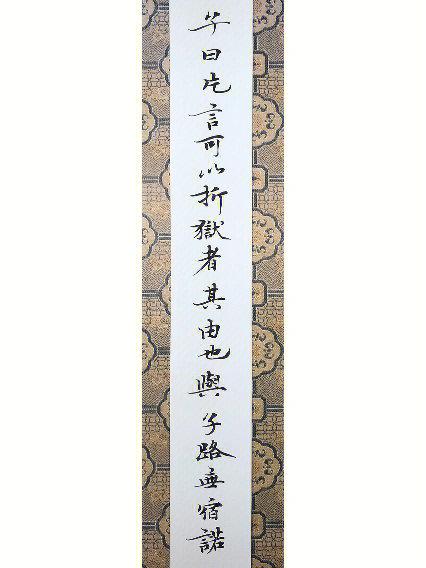 子曰片言可以折獄者其由也與子路無宿諾